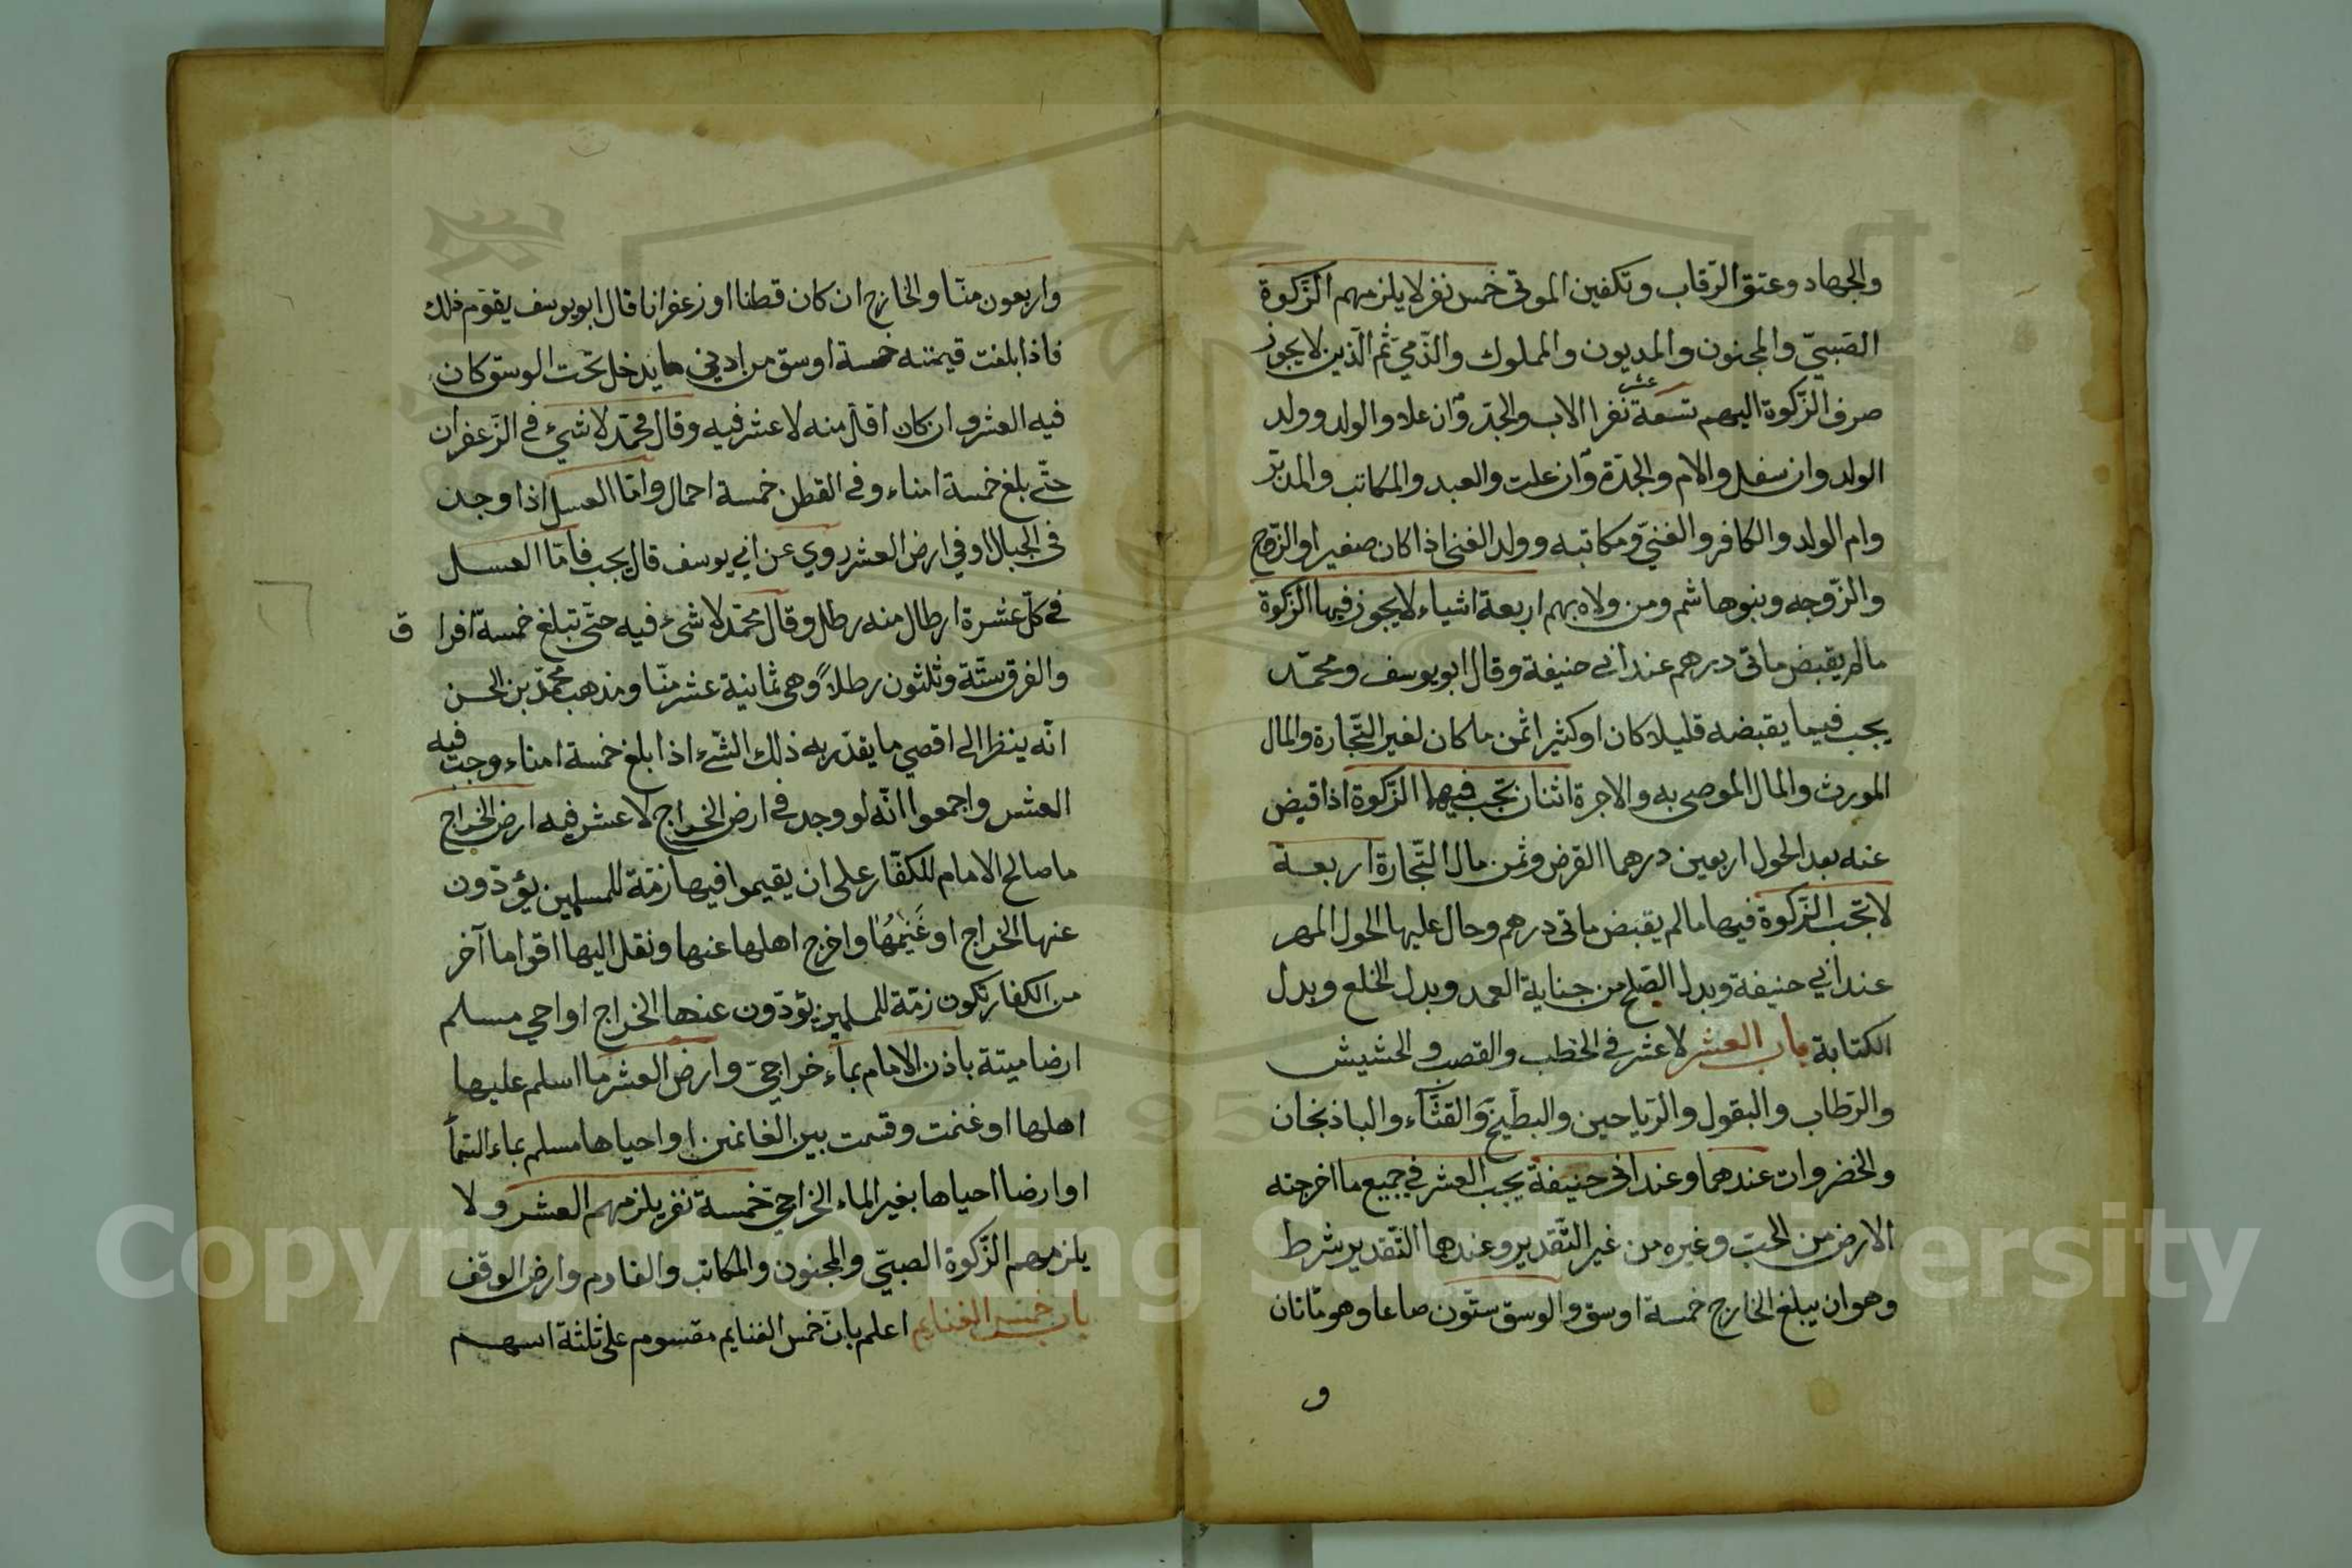 والجهاد وعتق الرّقاب وتكفين الموتى خمس نفر لا يلزمهم الزّكوة
الصّبيّ والمجنون والمديون والمملوك والذّميّ ثم الّذين لا يجوز
صرف الزّكوة اليهم تسعة عشر نفرا الاب والجدّ وّان علا والولد وولد
الولد وان سفل والام والجدّة وّان علت والعبد والمكاتب والمدبّر
وام الولد والكافر والغنيّ ومكاتبه وولد الغنى اذا كان صغيرا والزّوج
والزّوجه وبنوهاشم ومن ولاه بهم اربعة اشياء لا يجوز فيها الزّكوة
مالم يقبض ماتى درهم عند ابى حنيفة وقال ابو يوسف ومحمّد
يجب فيما يقبضه قليلا كان او كثيرا ثمن ما كان لغير التّجارة والمال
المورث والمال الموصى به والاجرة اثنان تجب فيهما الزّكوة اذا قبض
عنه بعد الحول اربعين درهما القرض وثمن مال التّجارة اربعة
لا تجب الزّكوة فيها مالم يقبض ماتى درهم وحال عليها الحول المهر
عند ابي حنيفة وبدل الصّلح من جناية العمد وبدل الخلع وبدل
الكتابة باب العشر لا عشر في الحطب والقصب والحشيش
والرّطاب والبقول والرّياحين والبطّيخ والقثّاء والباذنجان
والخضروات عندهما وعند ابى حنيفة يجب العشر في جميع ما اخرجته
الارض من الحبّ وغيره من غير التّقدير وعندها التّقدير شرط
وهو ان يبلغ الخارج خمسة اوسق والوسق ستّون صاعا وهو ماتان
و
واربعون منّا والخارج ان كان قطنا او زعفرانا قال ابو يوسف يقوّم ذلك
فاذا بلغت قيمته خمسة اوسق من ادنى ما يدخل تحت الوسق كان
فيه العشر وان كان اقلّ منه لا عشر فيه وقال محمّد لا شيء في الزّعفران
حتّى بلغ خمسة امناء وفى القطن خمسة احمال وامّا العسل اذا وجد
فى الجبال او في ارض العشر روي عن ابي يوسف قال يجب فامّا العسل
في كلّ عشرة ارطال منه رطل وقال محمّد لا شىء فيه حتّى تبلغ خمسة افرا ق
والفرق ستّة وثلثون رطلاً وهى ثمانية عشر منّا ومذهب محمّد بن الحسن
انّه ينظر الى اقصي ما يقدّر به ذلك الشّىء اذا بلغ خمسة امناء وجب فيه
العشر واجمعوا انّه لو وجد في ارض الخراج لا عشر فيه ارض الخراج
ما صالح الامام للكفّار على ان يقيموا فيها زمّة للمسلمين يؤدّون
عنها الخراج او غَنِمَهَا واخرج اهلها عنها ونقل اليها اقواما آخر
من الكفار تكون زمّة للمسلمين يؤدّون عنها الخراج او احي مسلم
ارضا ميتة باذن الامام بماء خراجيّ وارض العشر ما اسلم عليها
اهلها او غنمت وقسمت بين الغانمين او احياها مسلم بماء السّمأ
او ارضا احياها بغير الماء الخراجيّ خمسة نفر يلزمهم العشر ولا
يلزمهم الزّكوة الصبيّ والمجنون والمكاتب والغارم وارض الوقف
باب خمس الغنايم اعلم بانّ خمس الغنايم مقسوم على ثلثة اسهم
Copyright © King Saud University